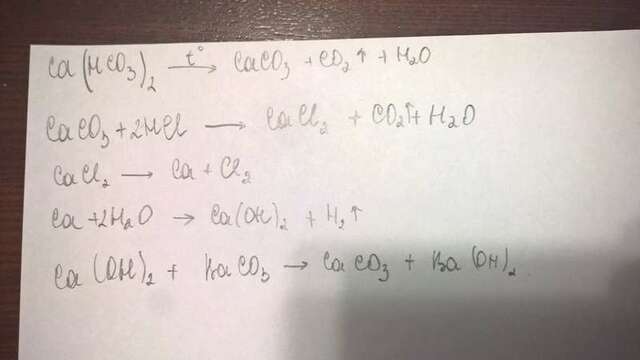 Ca(HCO₃)₂ —t°→ CaCO₃ + CO₂↑ + H₂O
CaCO₃ + 2HCl → CaCl₂ + CO₂↑ + H₂O
CaCl₂ → Ca + Cl₂
Ca + 2H₂O → Ca(OH)₂ + H₂↑
Ca(OH)₂ + BaCO₃ → CaCO₃ + Ba(OH)₂